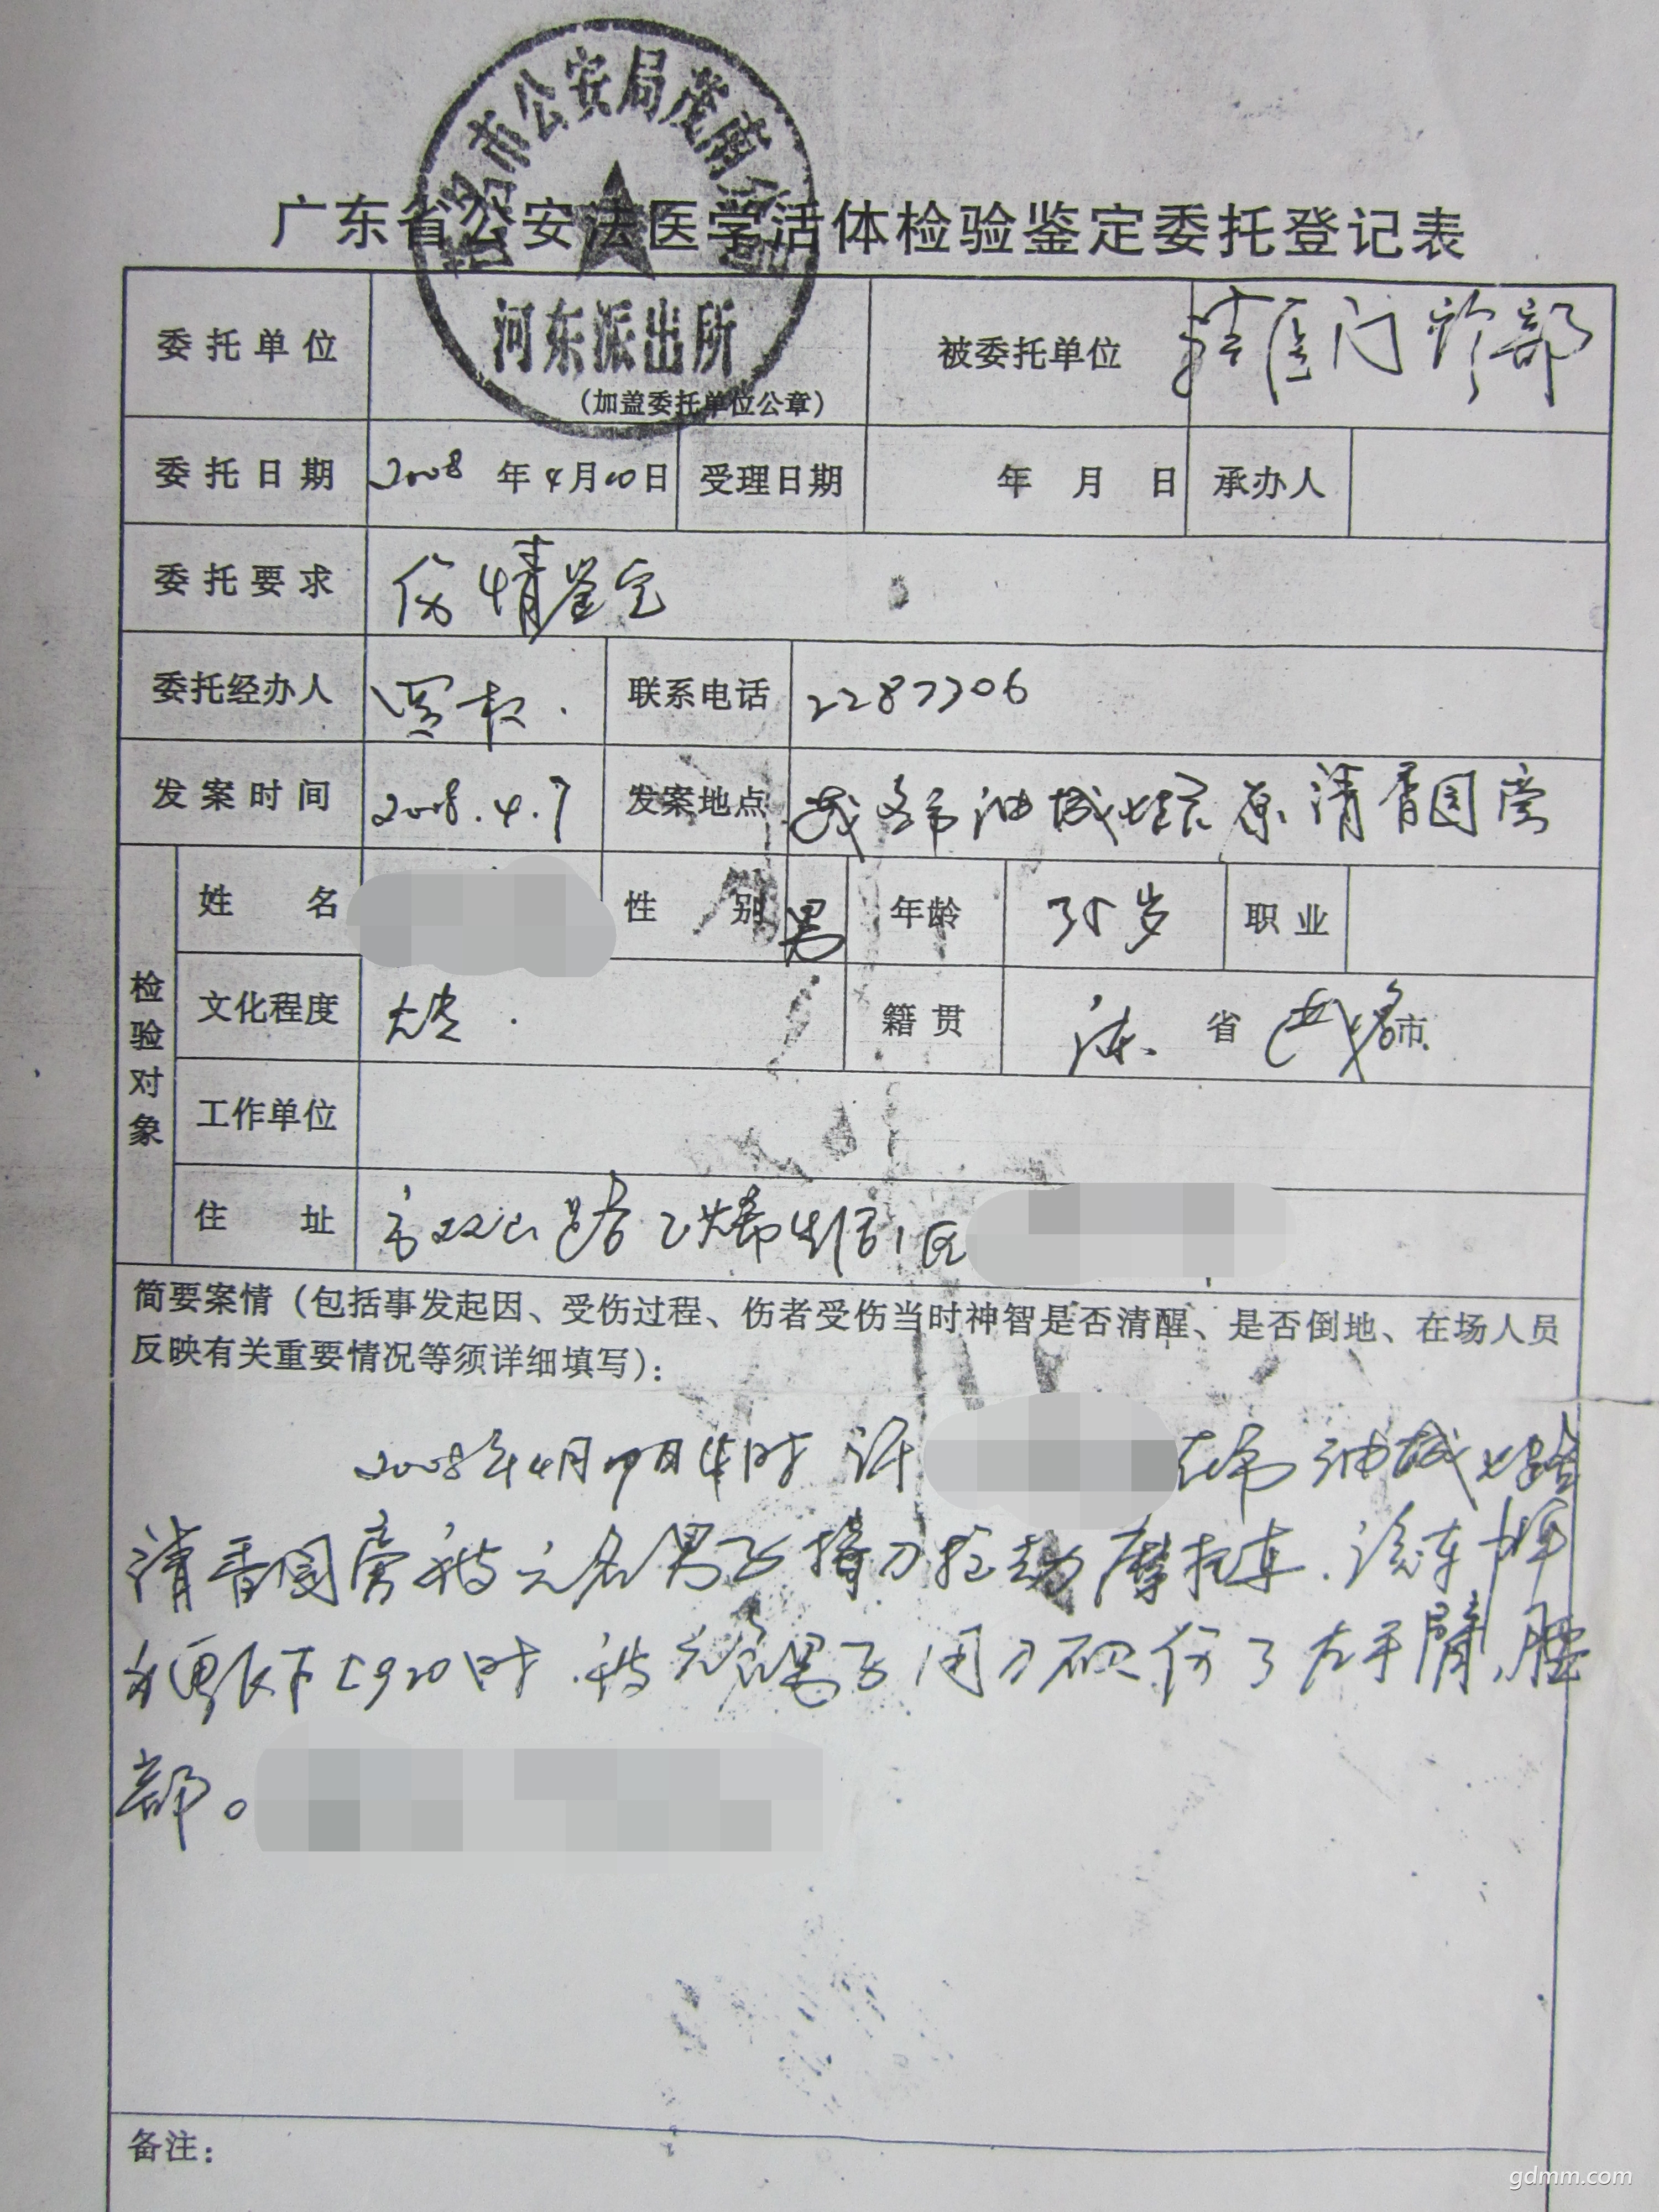 茂名市公安局茂南分局
广东省公安法医学活体检验鉴定委托登记表
委托单位 河东派出所 (加盖委托单位公章) 被委托单位 门诊部
委托日期 2008年4月10日 受理日期 年 月 日 承办人
委托要求 伤情鉴定
委托经办人 联系电话 2287306
发案时间 2008.4.7 发案地点 茂名市油城七路原清香园旁
检验对象
姓名 性别 男 年龄 35岁 职业
文化程度 大专. 籍贯 省 茂名市
工作单位
住址 区
简要案情(包括事发起因、受伤过程、伤者受伤当时神智是否清醒、是否倒地、在场人员
反映有关重要情况等须详细填写):
2008年4月 时 许 在市油城七路
清香园旁被三名男子持刀拦劫摩托车.该车牌
时.被三名男子用刀砍伤了左手臂、腰
部。
备注:
gdmm.com